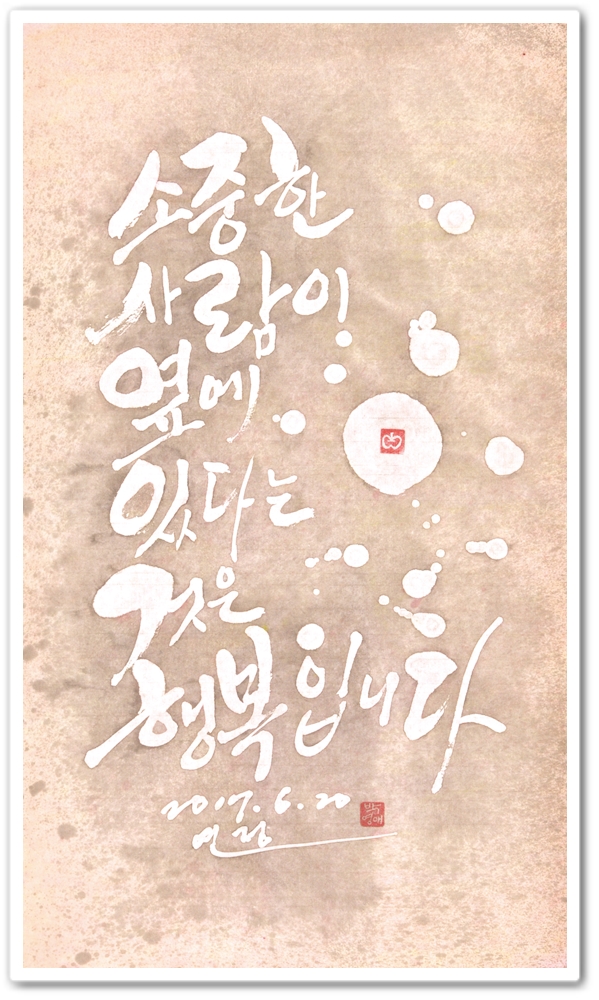 소중한
사람이
옆에
있다는
것은
행복입니다
2017. 6. 20
연랑
박영애